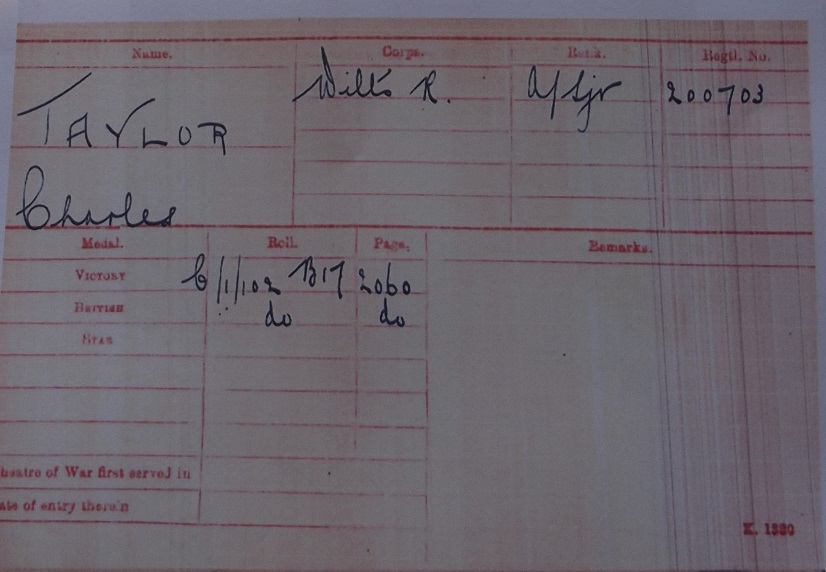 Name. Corps. Rank. Regtl. No.
TAYLOR Wilts R. A/Sjr 200703
Charles
Medal. Roll. Page. Remarks.
VICTORY C/1/102 B17 2060
BRITISH do do
STAR
heatre of War first served in
ate of entry therein
K. 1380